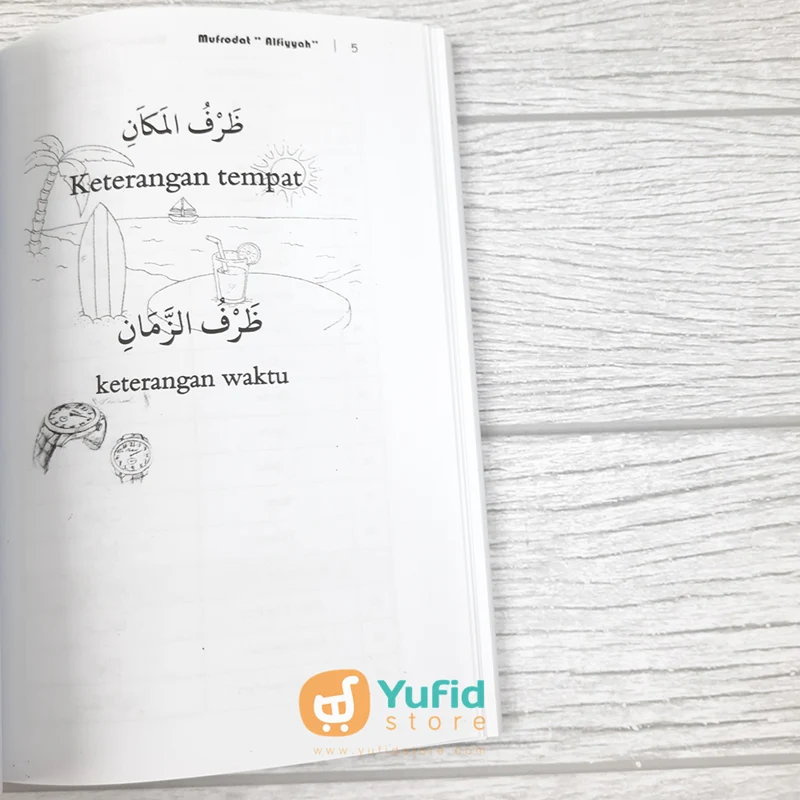 Mufrodat " Alfiyyah" | 5
ظَرْفُ المَكَانِ
Keterangan tempat
ظَرْفُ الزَّمَانِ
keterangan waktu
Yufid
store
www.yufidstore.com